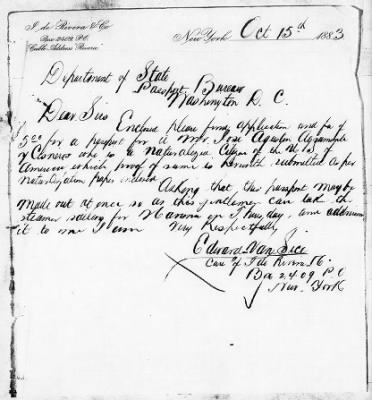 J. de Rivera & Co
Box 2409, P.O.
"Cable Address Rivera"
New York Oct 15th 1883
Department of State
Passport Bureau
Washington D. C.
Dear Sirs Enclosed please find application and fee of
5.00 for a passport for a Mr. Jose Agustin
of who is a Naturalized Citizen of the U. S.
America, which proof of same is herewith submitted as per
naturalization paper enclosed.
Asking that this passport may be
made out at once so as this gentleman can take the
steamer sailing for Havana on Thursday, and address
it to me I am Very Respectfully
Edward Van Sice
Care of J de Rivera & Co.
Box 2409 P.O
New York